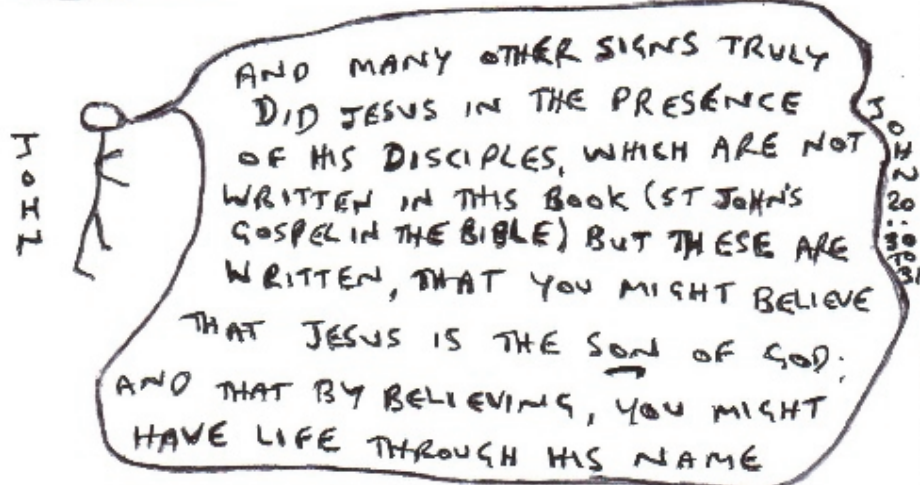 AND MANY OTHER SIGNS TRULY
DID JESUS IN THE PRESENCE
OF HIS DISCIPLES, WHICH ARE NOT
WRITTEN IN THIS BOOK (ST JOHN'S
GOSPEL IN THE BIBLE) BUT THESE ARE
WRITTEN, THAT YOU MIGHT BELIEVE
THAT JESUS IS THE SON OF GOD.
AND THAT BY BELIEVING, YOU MIGHT
HAVE LIFE THROUGH HIS NAME
JOHN
JOHN 20:30 TO 31